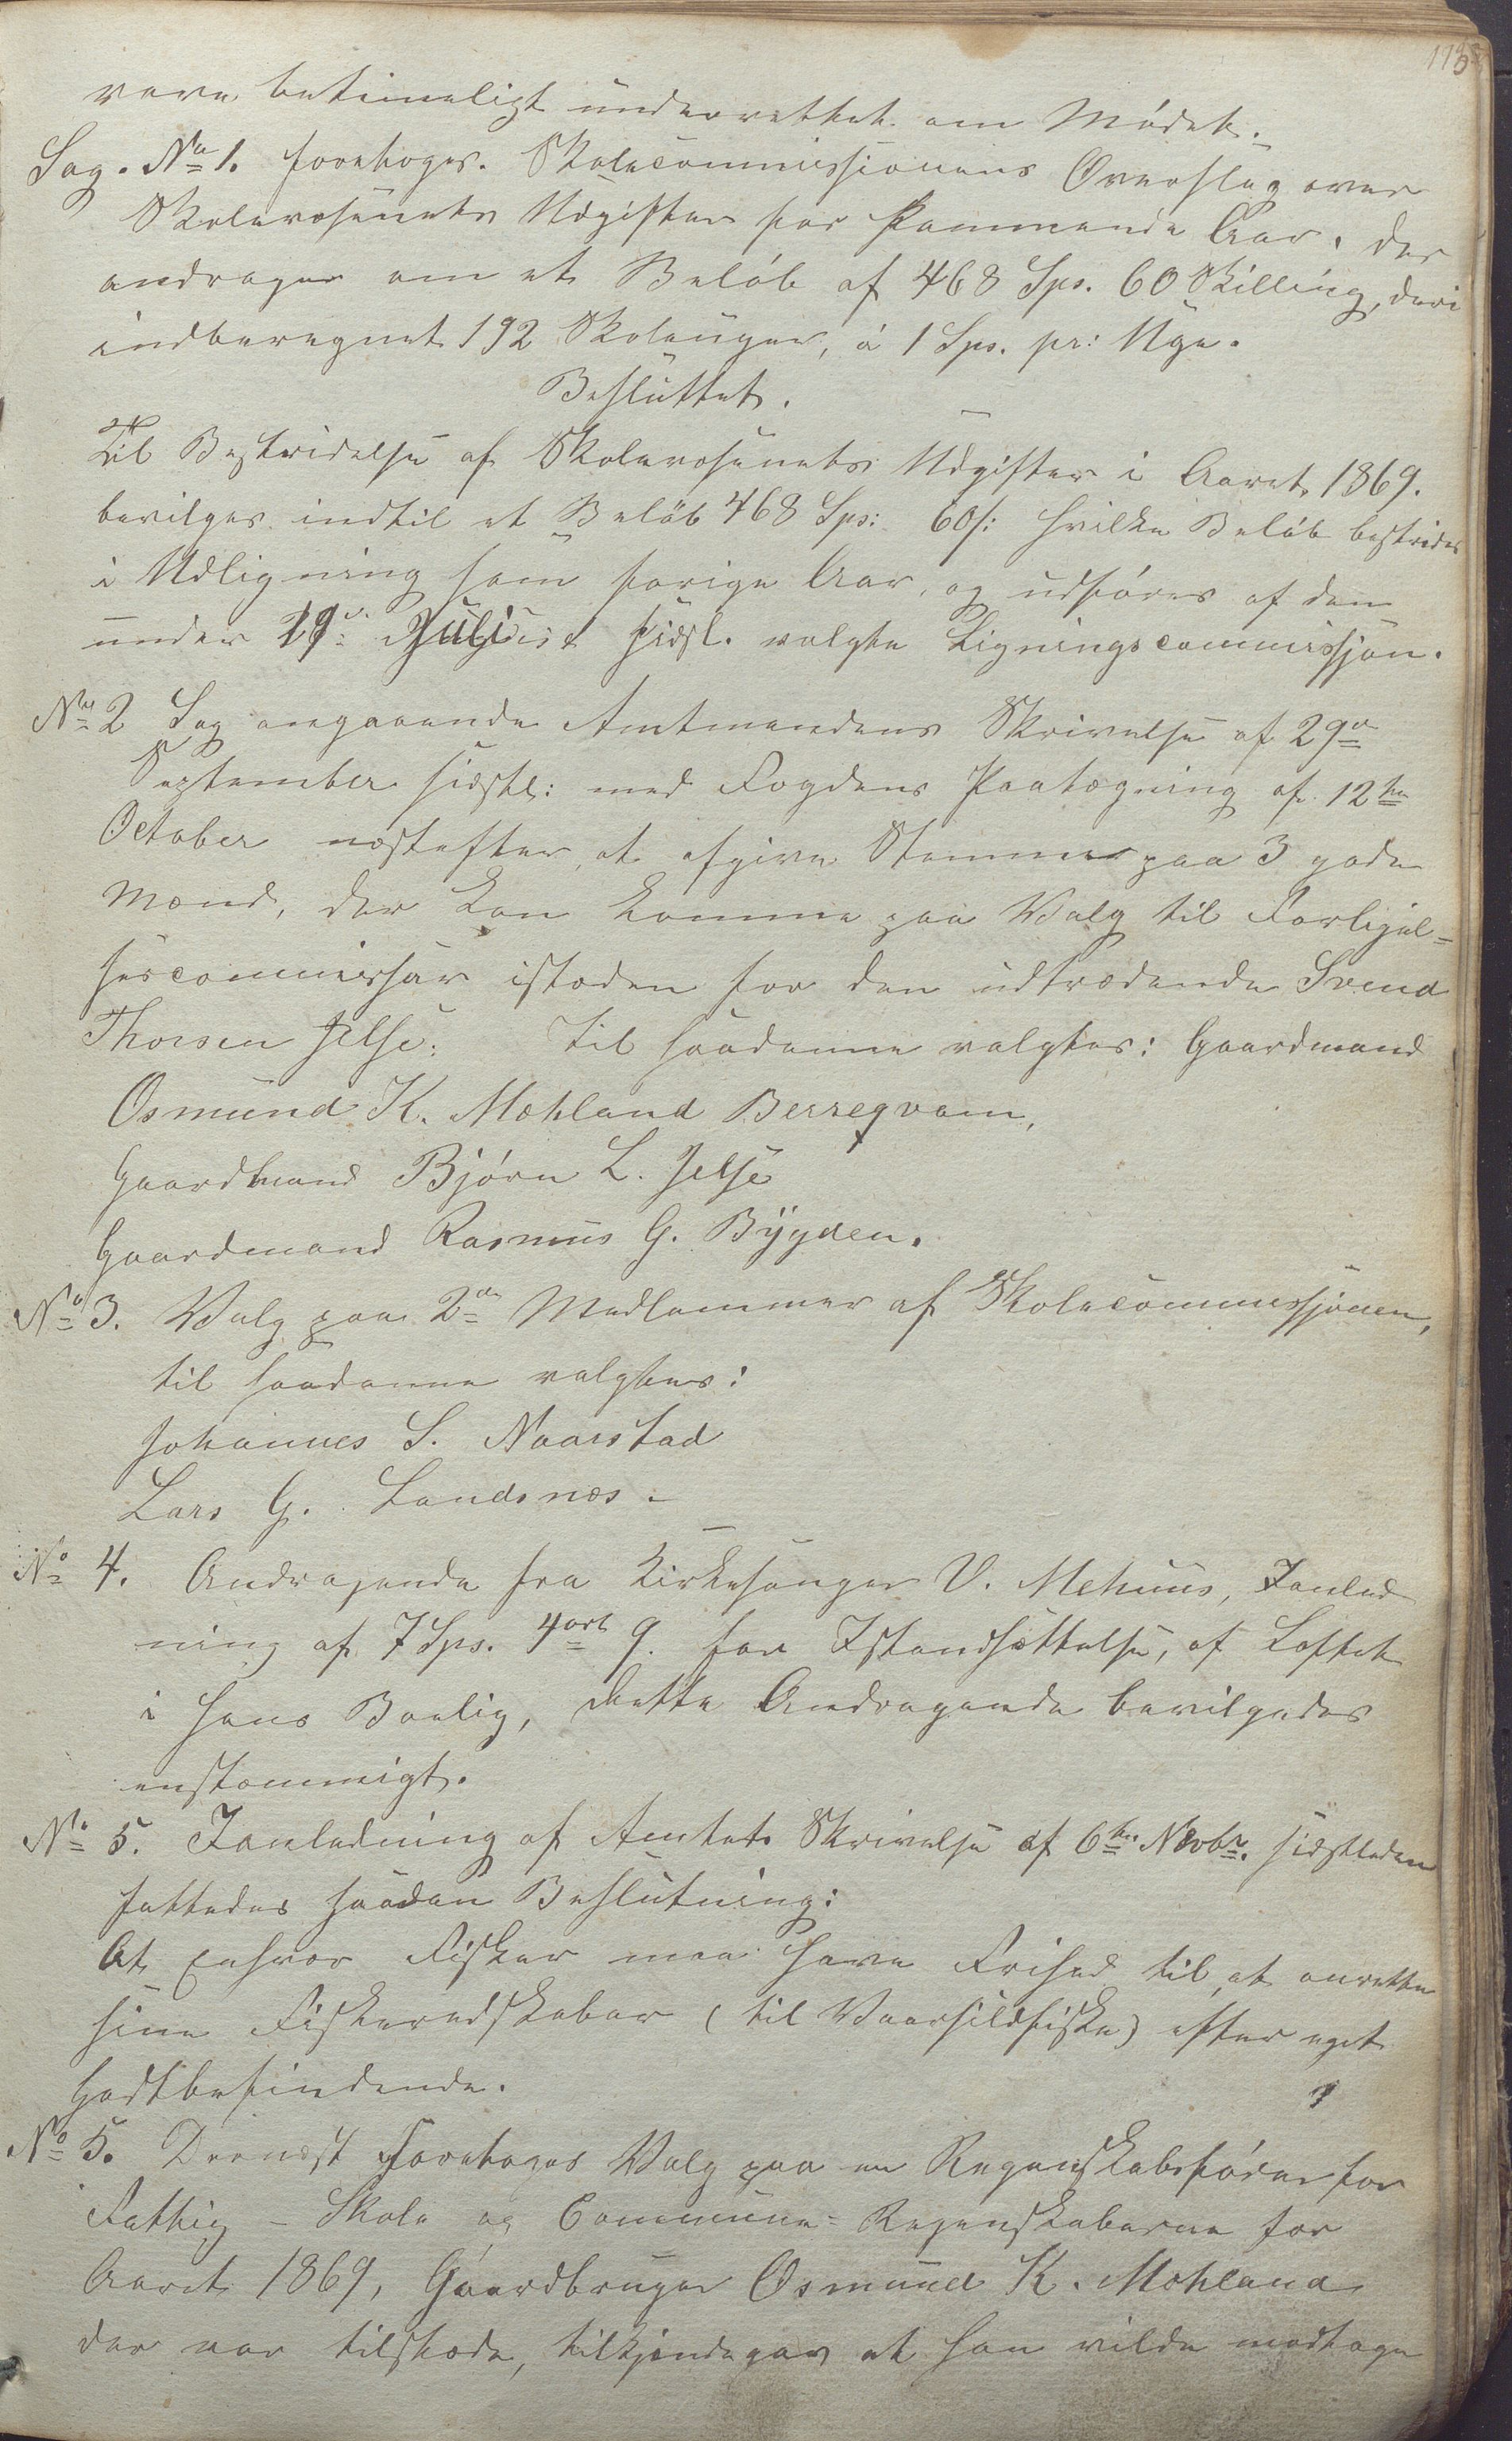 113
være betimeligt underrettet om Mødet.
Sag. No 1. foretoges. Skolecommissionens Overslag over
Skolevæsenets Udgifter for kommende Aar, der
andrager om et Beløb af 468 Spd. 60 Skilling, deri
indberegnet 192 Skoleuger, á 1 Spd. pr: Uge.
Besluttet.
Til Bestridelse af Skolevæsenets Udgifter i Aaret 1869.
bevilges indtil et Beløb 468 Spd: 60 s: hvilke Beløb bestrides
i Udligning som forige Aar, og udføres af den
under 29de Juli sidstl. valgte Ligningscommissjon.
No 2 Sag angaaende Amtmandens Skrivelse af 29de
September sidstl: med Fogdens Paategning af 12te
October næstefter, at afgive Stemmer paa 3 gode
Mænd, der kan komme paa Valg til Forligel-
sescommissær istæden for den udtrædende Svend
Thorsen Jelse. Til saadanne valgtes: Gaardmand
Osmund K. Mæhland Berreqvam,
Gaardmand Bjørn L. Jelse
Gaardmand Rasmus G. Bÿgden.
No 3. Valg paa 2de Medlemmer af Skolecommissjonen,
til saadanne valgtes:
Johannes S. Naarstad
Lars G. Landsnes.
No 4. Andragende fra Kirkesanger V. Mehuus, Ianled
ning af 7 Spd. 4 ort 9 for Istandsættelse, af Loftet
i hans Bolig, dette Andragende bevilgedes
enstemmigt.
No 5. Ianledning af Amtets Skrivelse af 6te Novbr. sidstleden
fattedes saadan Beslutning:
At Enhver Fisker maa have Frihed til, at anrette
sine Fiskeredskaber (til Vaarsildfiske) efter eget
Godtbefindende.
No 5. Dernæst foretoges Valg paa en Regenskabsfører for
Fattig- Skole og Commune- Regenskaberne for
Aaret 1869, Gaardbruger Osmund K. Mæhland
der var tilstæde, tilkjendegav at han vilde modtage